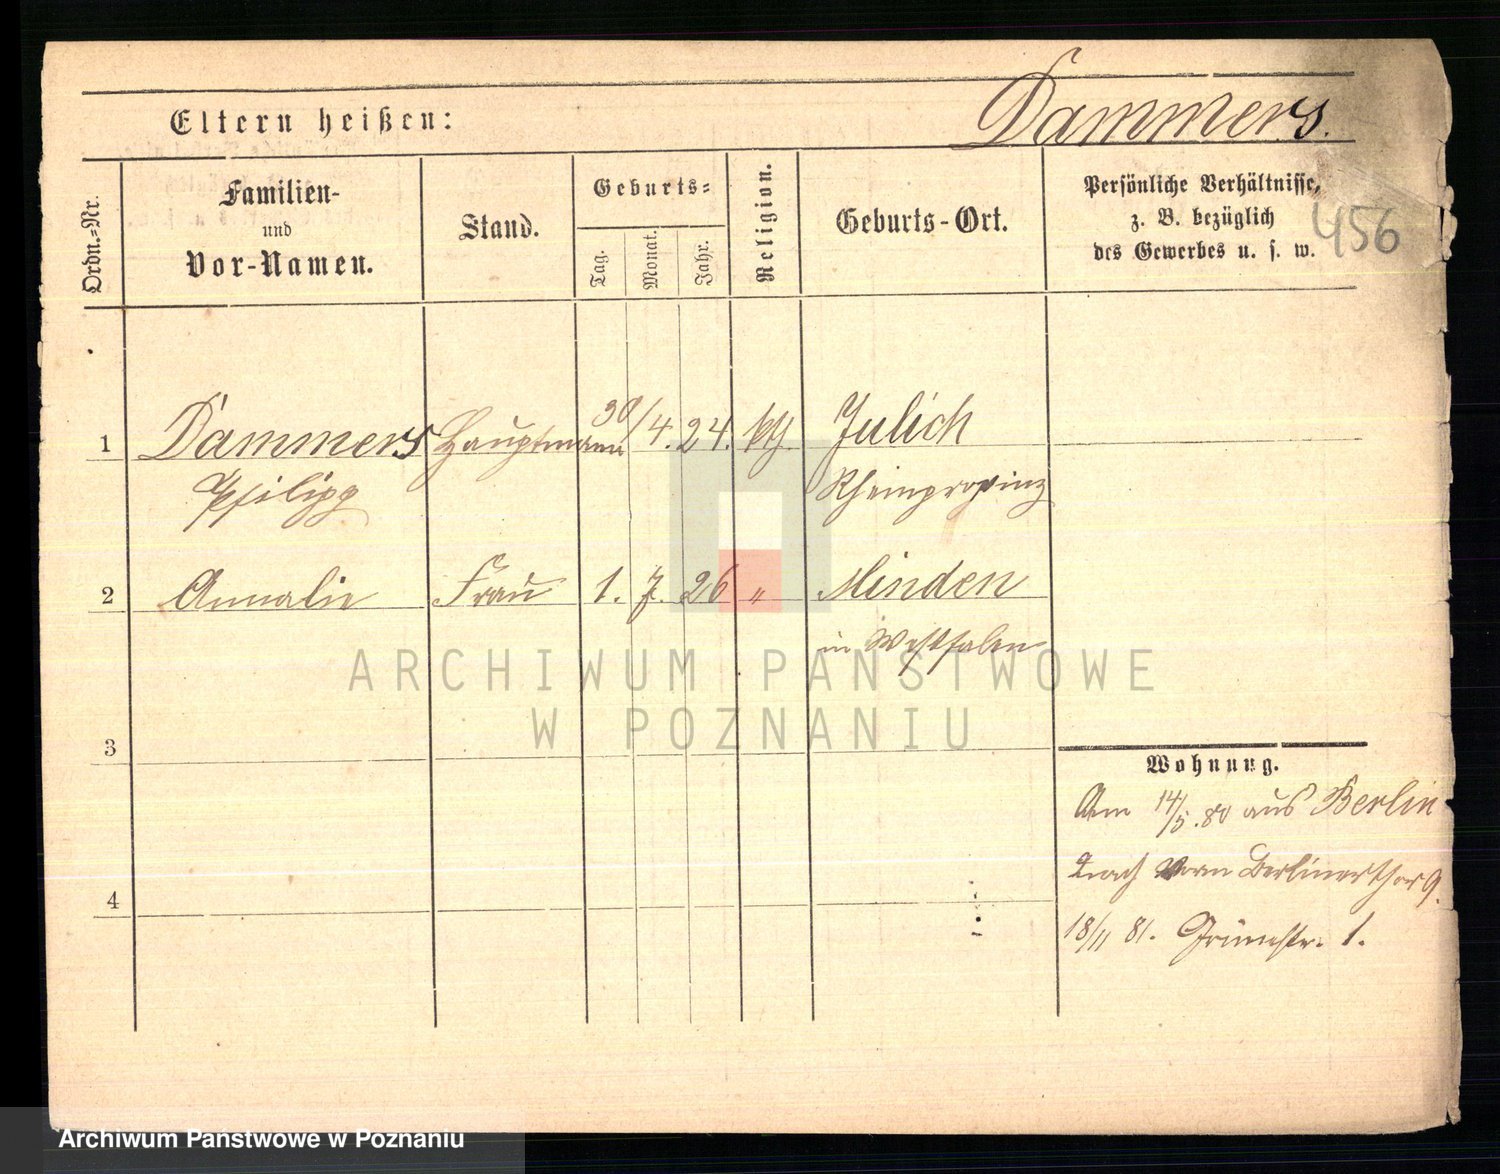 Eltern heißen:
Dammers.
Ordn.=Nr.
Familien-
und
Vor-Namen.
Stand.
Geburts=
Tag.
Monat.
Jahr.
Religion.
Geburts-Ort.
Persönliche Verhältnisse,
z. B. bezüglich
des Gewerbes u. s. w.
456
1 Dammers Hauptmann 30/4. 24. kth. Julich
Philipp Rheinprovinz
2 Annalie Frau 1. 7. 26 " Minden
in Westfalen
ARCHIWUM PAŃSTWOWE
W POZNANIU
3
Wohnung.
Am 14/5. 80 aus Berlin
nach Berlinerthor 9.
4
18/11 81. Grünstr. 1.
Archiwum Państwowe w Poznaniu